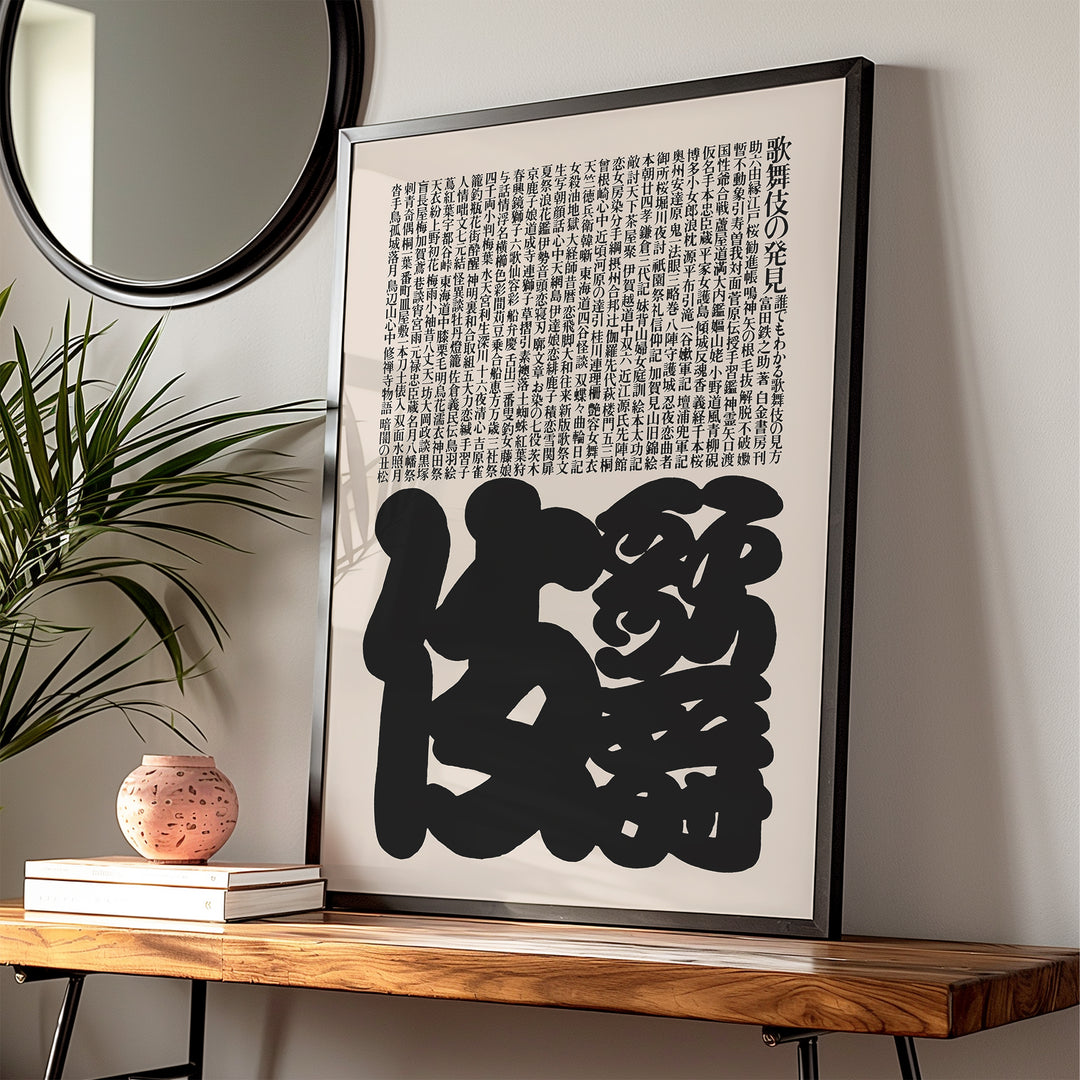 歌舞伎の発見
誰でもわかる歌舞伎の見方
富田鉄之助 著 白金書房刊
助六由縁江戸桜 勧進帳 鳴神 矢の根 毛抜 解脱 不破 嫐
暫 不動 象引 寿曽我対面 菅原伝授手習鑑 神霊矢口渡
国性爺合戦 蘆屋道満大内鑑 嫗山姥 小野道風青柳硯
仮名手本忠臣蔵 平家女護島 傾城反魂香 義経千本桜
博多小女郎浪枕 源平布引滝 一谷嫩軍記 壇浦兜軍記
奥州安達原 鬼一法眼三略巻 八陣守護城 忍夜恋曲者
御所桜堀川夜討 祇園祭礼信仰記 加賀見山旧錦絵
本朝廿四孝 鎌倉三代記 妹背山婦女庭訓 絵本太功記
敵討天下茶屋聚 伊賀越道中双六 近江源氏先陣館
恋女房染分手綱 摂州合邦辻 伽羅先代萩 楼門五三桐
曾根崎心中 近頃河原の達引 桂川連理柵 艶容女舞衣
天竺徳兵衛韓噺 東海道四谷怪談 双蝶々曲輪日記
女殺油地獄 大経師昔暦 恋飛脚大和往来 新版歌祭文
生写朝顔話 心中天網島 伊達娘恋緋鹿子 積恋雪関扉
夏祭浪花鑑 伊勢音頭恋寝刃 廓文章 お染の七役 茨木
京鹿子娘道成寺 連獅子 草摺引 素襖落 土蜘 紅葉狩
春興鏡獅子 六歌仙容彩 船弁慶 舌出三番叟 釣女 藤娘
与話情浮名横櫛 色彩間苅豆 乗合船恵方万歳 三社祭
四千両小判梅葉 水天宮利生深川 十六夜清心 吉原雀
籠釣瓶花街酔醒 神明裏和合取組 五大力恋緘 手習子
人情咄文七元結 怪異談牡丹燈籠 佐倉義民伝 鳥羽絵
蔦紅葉宇都谷峠 東海道中膝栗毛 明烏花濡衣 神田祭
天衣紛上野初花 梅雨小袖昔八丈 天一坊大岡政談 黒塚
盲長屋梅加賀鳶 巷談宵宮雨 元禄忠臣蔵 名月八幡祭
刺青奇偶 桐一葉 番町皿屋敷 一本刀土俵入 双面水照月
沓手鳥孤城落月 鳥辺山心中 修禅寺物語 暗闇の丑松
歌舞
伎